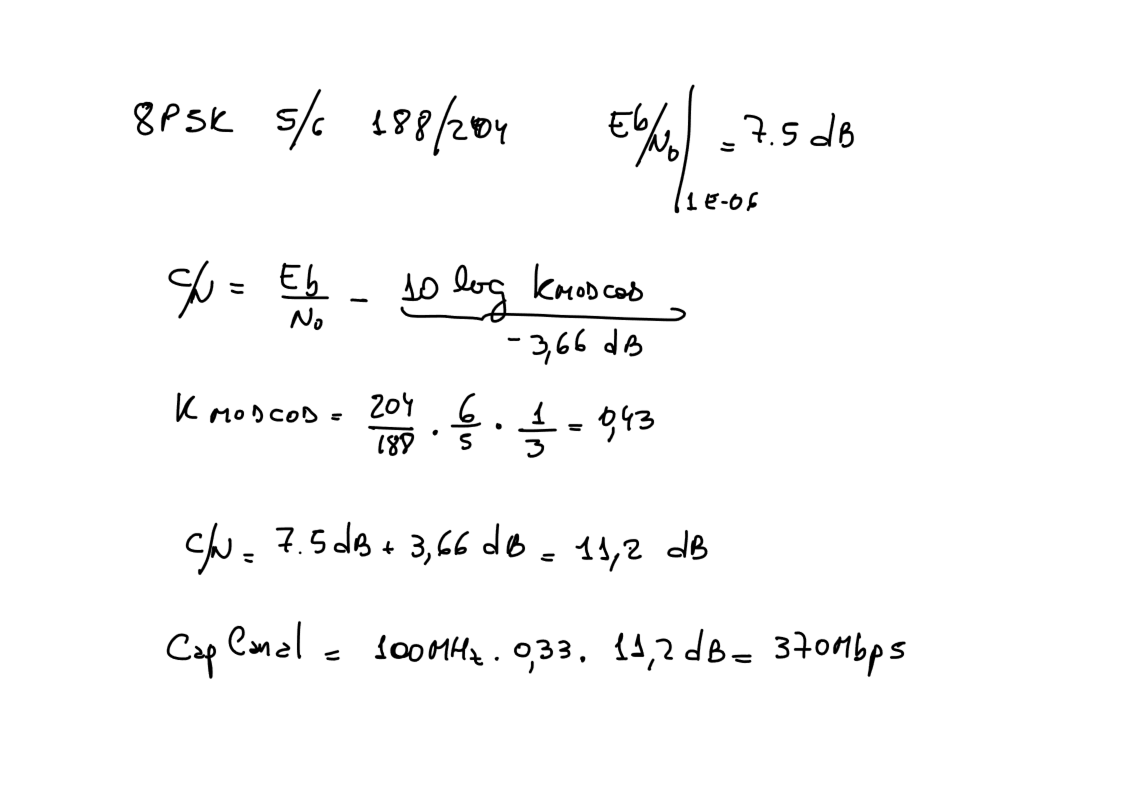 8PSK 5/6 188/204 Eb/N0 |1E-06 = 7.5 dB
C/N = Eb/N0 - 10 log KMODCOD
- 3,66 dB
KMODCOD = 204/188 . 6/5 . 1/3 = 0,43
C/N = 7.5 dB + 3,66 dB = 11,2 dB
Cap Canal = 100MHz . 0,33 . 11,2 dB = 370Mbps